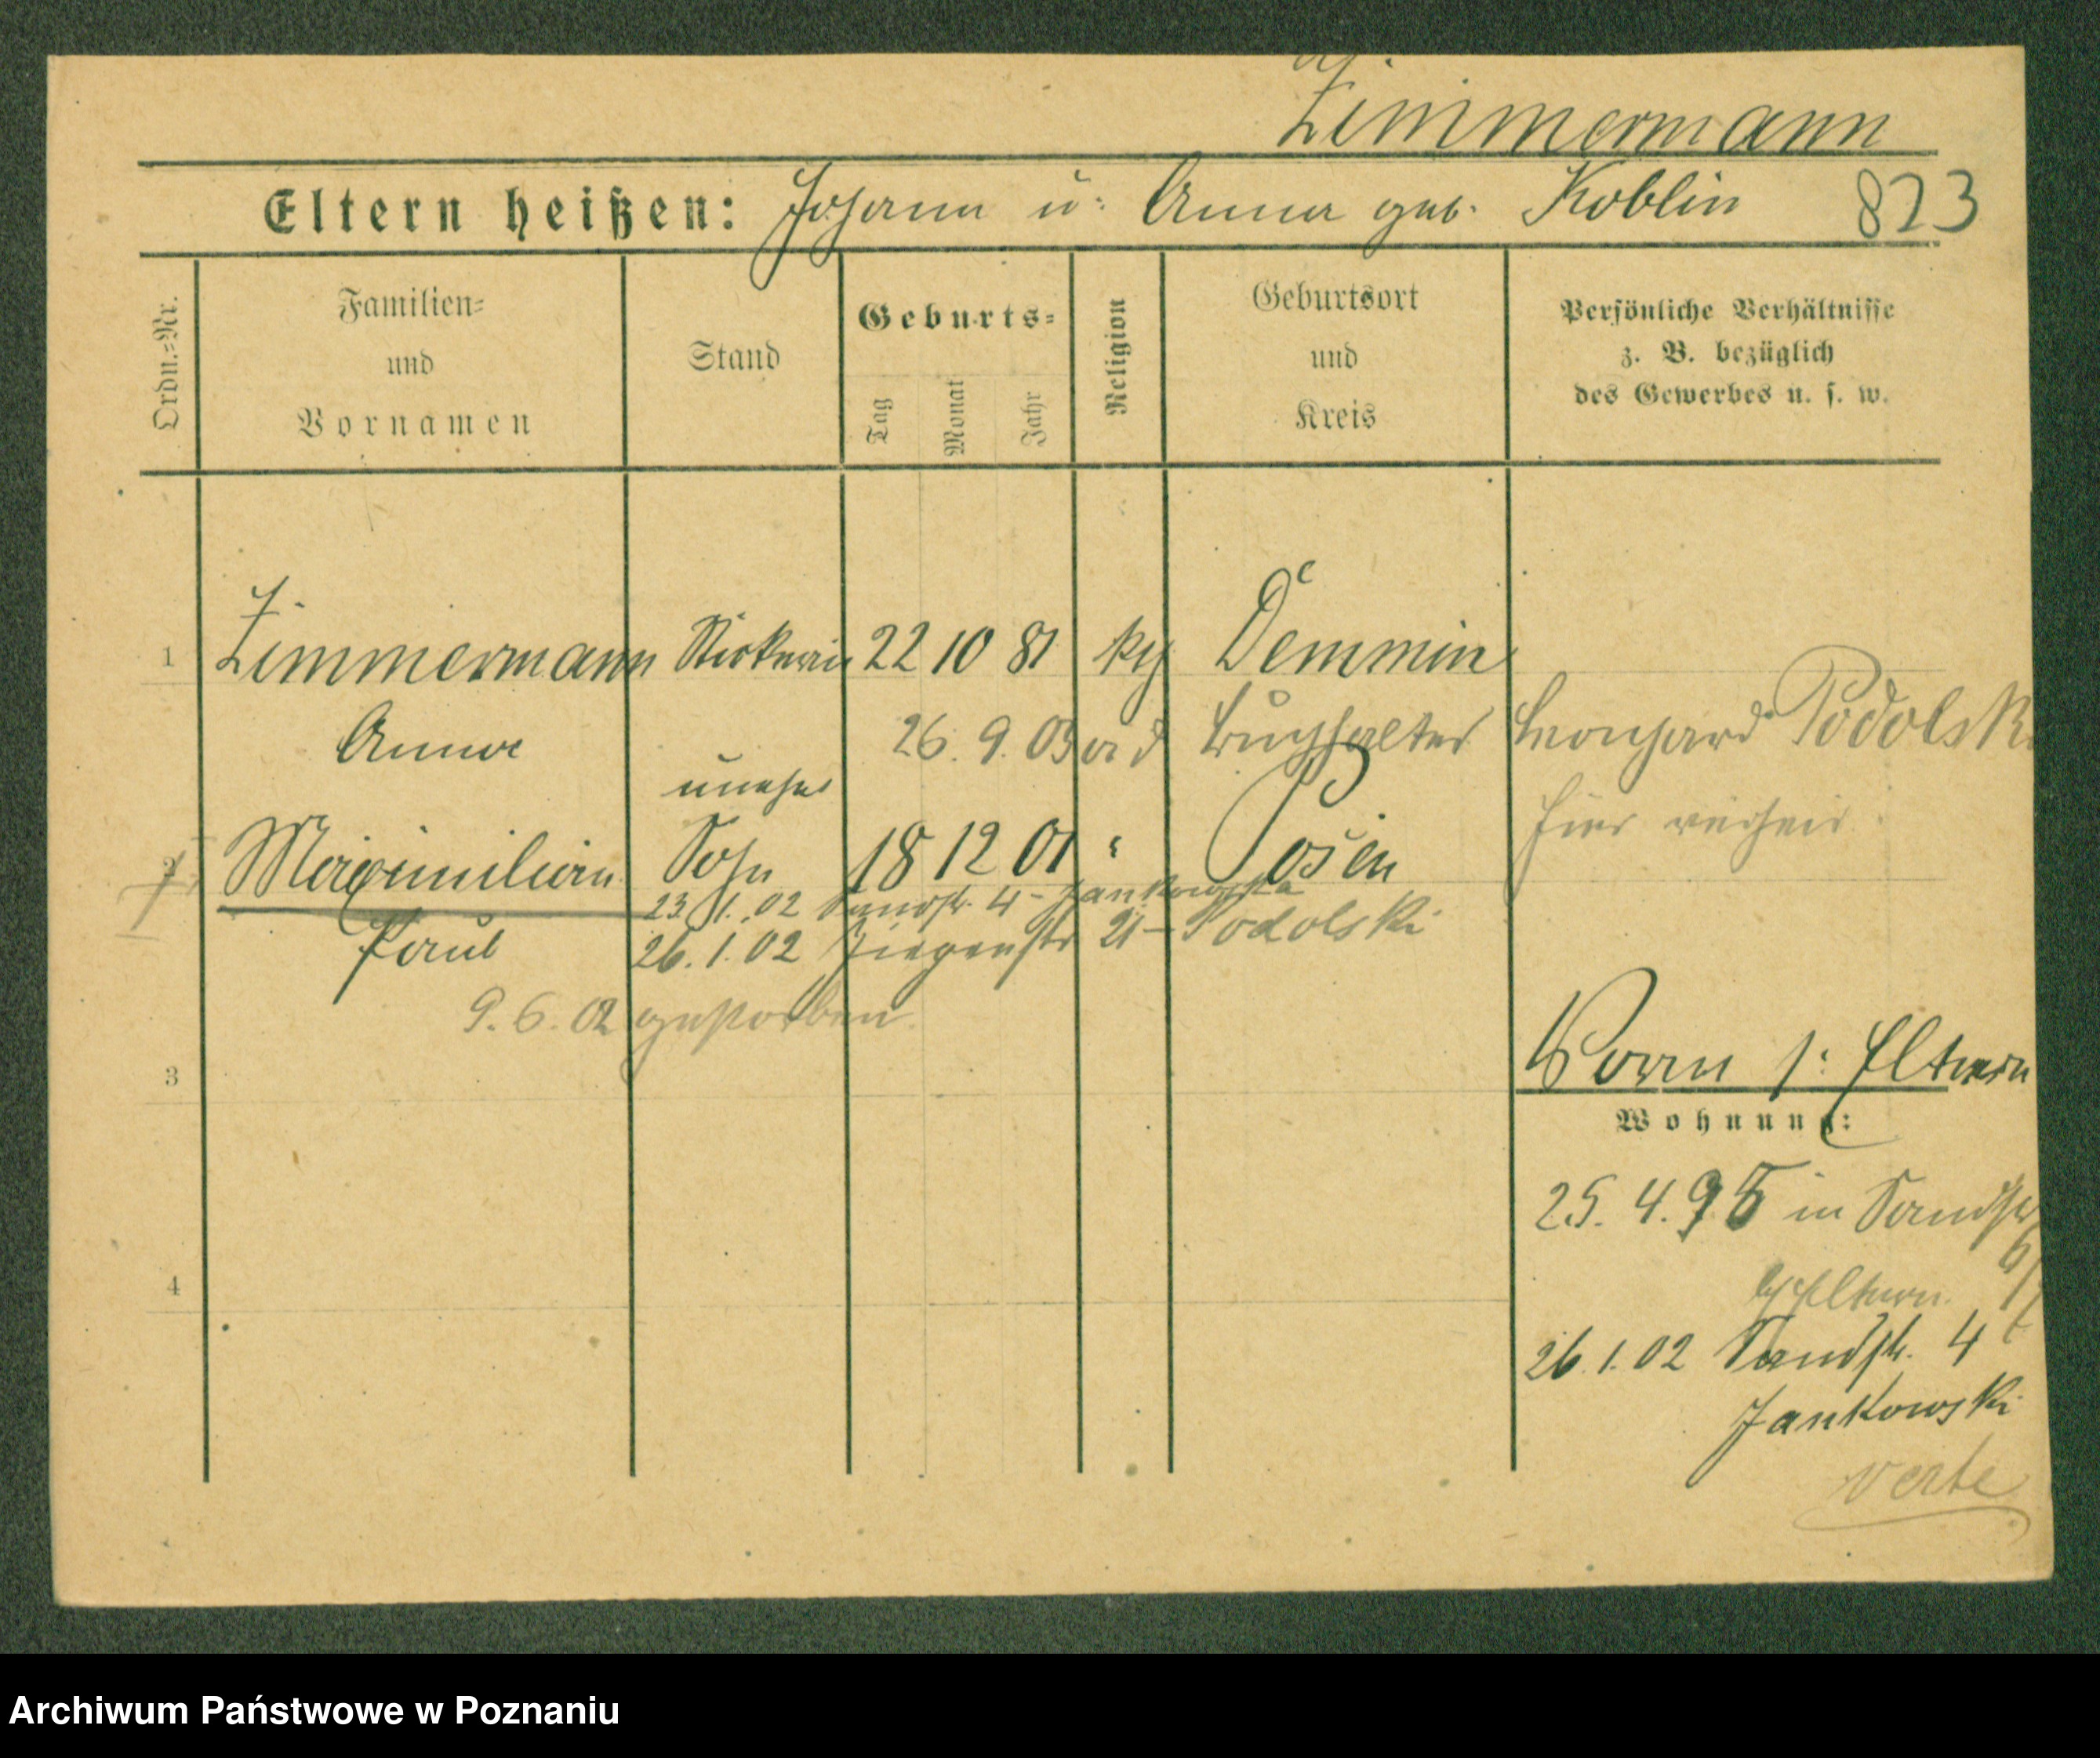 Zimmermann
Eltern heißen: Johann u: Anna geb. Koblin 823
Ordn.=Nr.
Familien=
und
Vornamen
Stand
Geburts=
Tag
Monat
Jahr
Religion
Geburtsort
und
Kreis
Persönliche Verhältnisse
z. B. bezüglich
des Gewerbes u. s. w.
1 Zimmermann Stickerin 22 10 81 kth Demmin
Anna 26. 9. 03 a d Buchhalter Leonhard Podolski
hier verheir.
unehel
2 Maximilian Sohn 18 12 01 " Posen
23. 1. 02 Sandstr. 4 - Jankowska
Paul 26. 1. 02 Ziegenstr 21 - Podolski
9. 6. 02 gestorben
3
Vorn s: Eltern
Wohnung:
25. 4. 95 in Sandstr
b/Eltern.
4
26. 1. 02 Sandstr. 4
Jankowski
verte
Archiwum Państwowe w Poznaniu